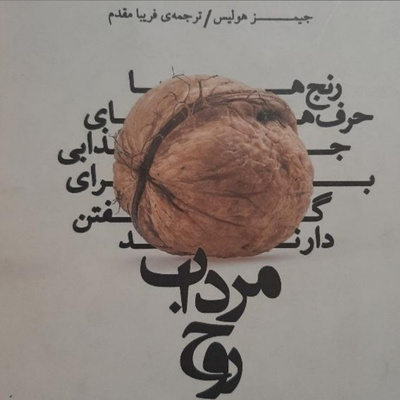 جیمـز هولیس/ترجمه‌ی فریبا مقدم
رنج‌هـا
حرف‌هـای
جـذابی
بـرای
گـفتن
دارنـد
مرداب
روح